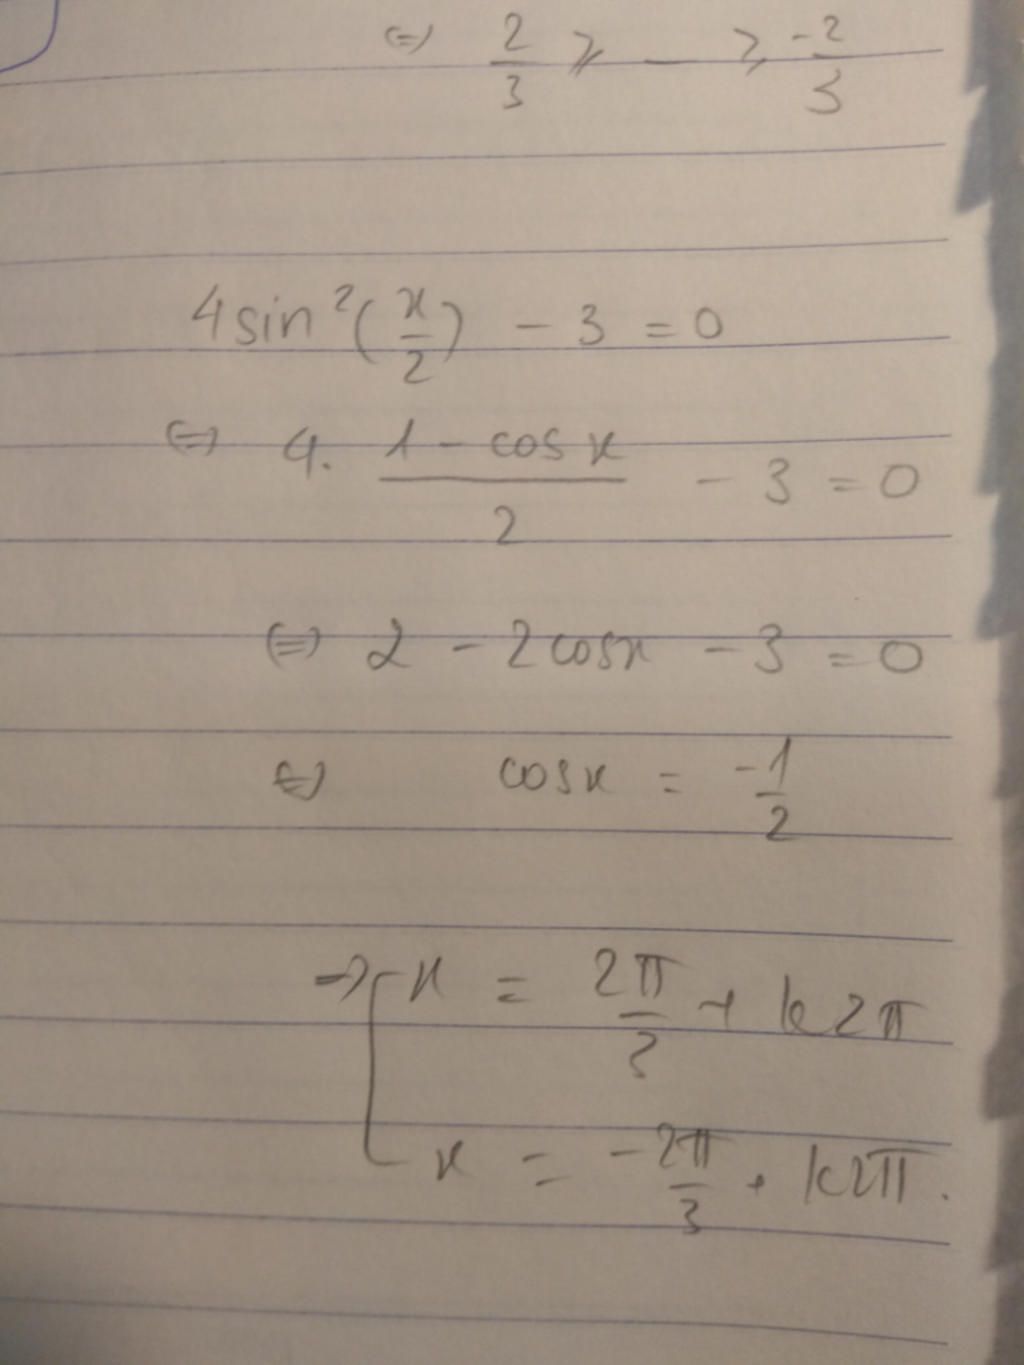 ⇔ 2/3 ≥ — ≥ -2/3
4sin²(x/2) - 3 = 0
⇔ 4. (1 - cos x)/2 - 3 = 0
⇔ 2 - 2cosx - 3 = 0
⇔ cosx = -1/2
⇒ [ x = 2π/3 + k2π
x = -2π/3 + k2π.